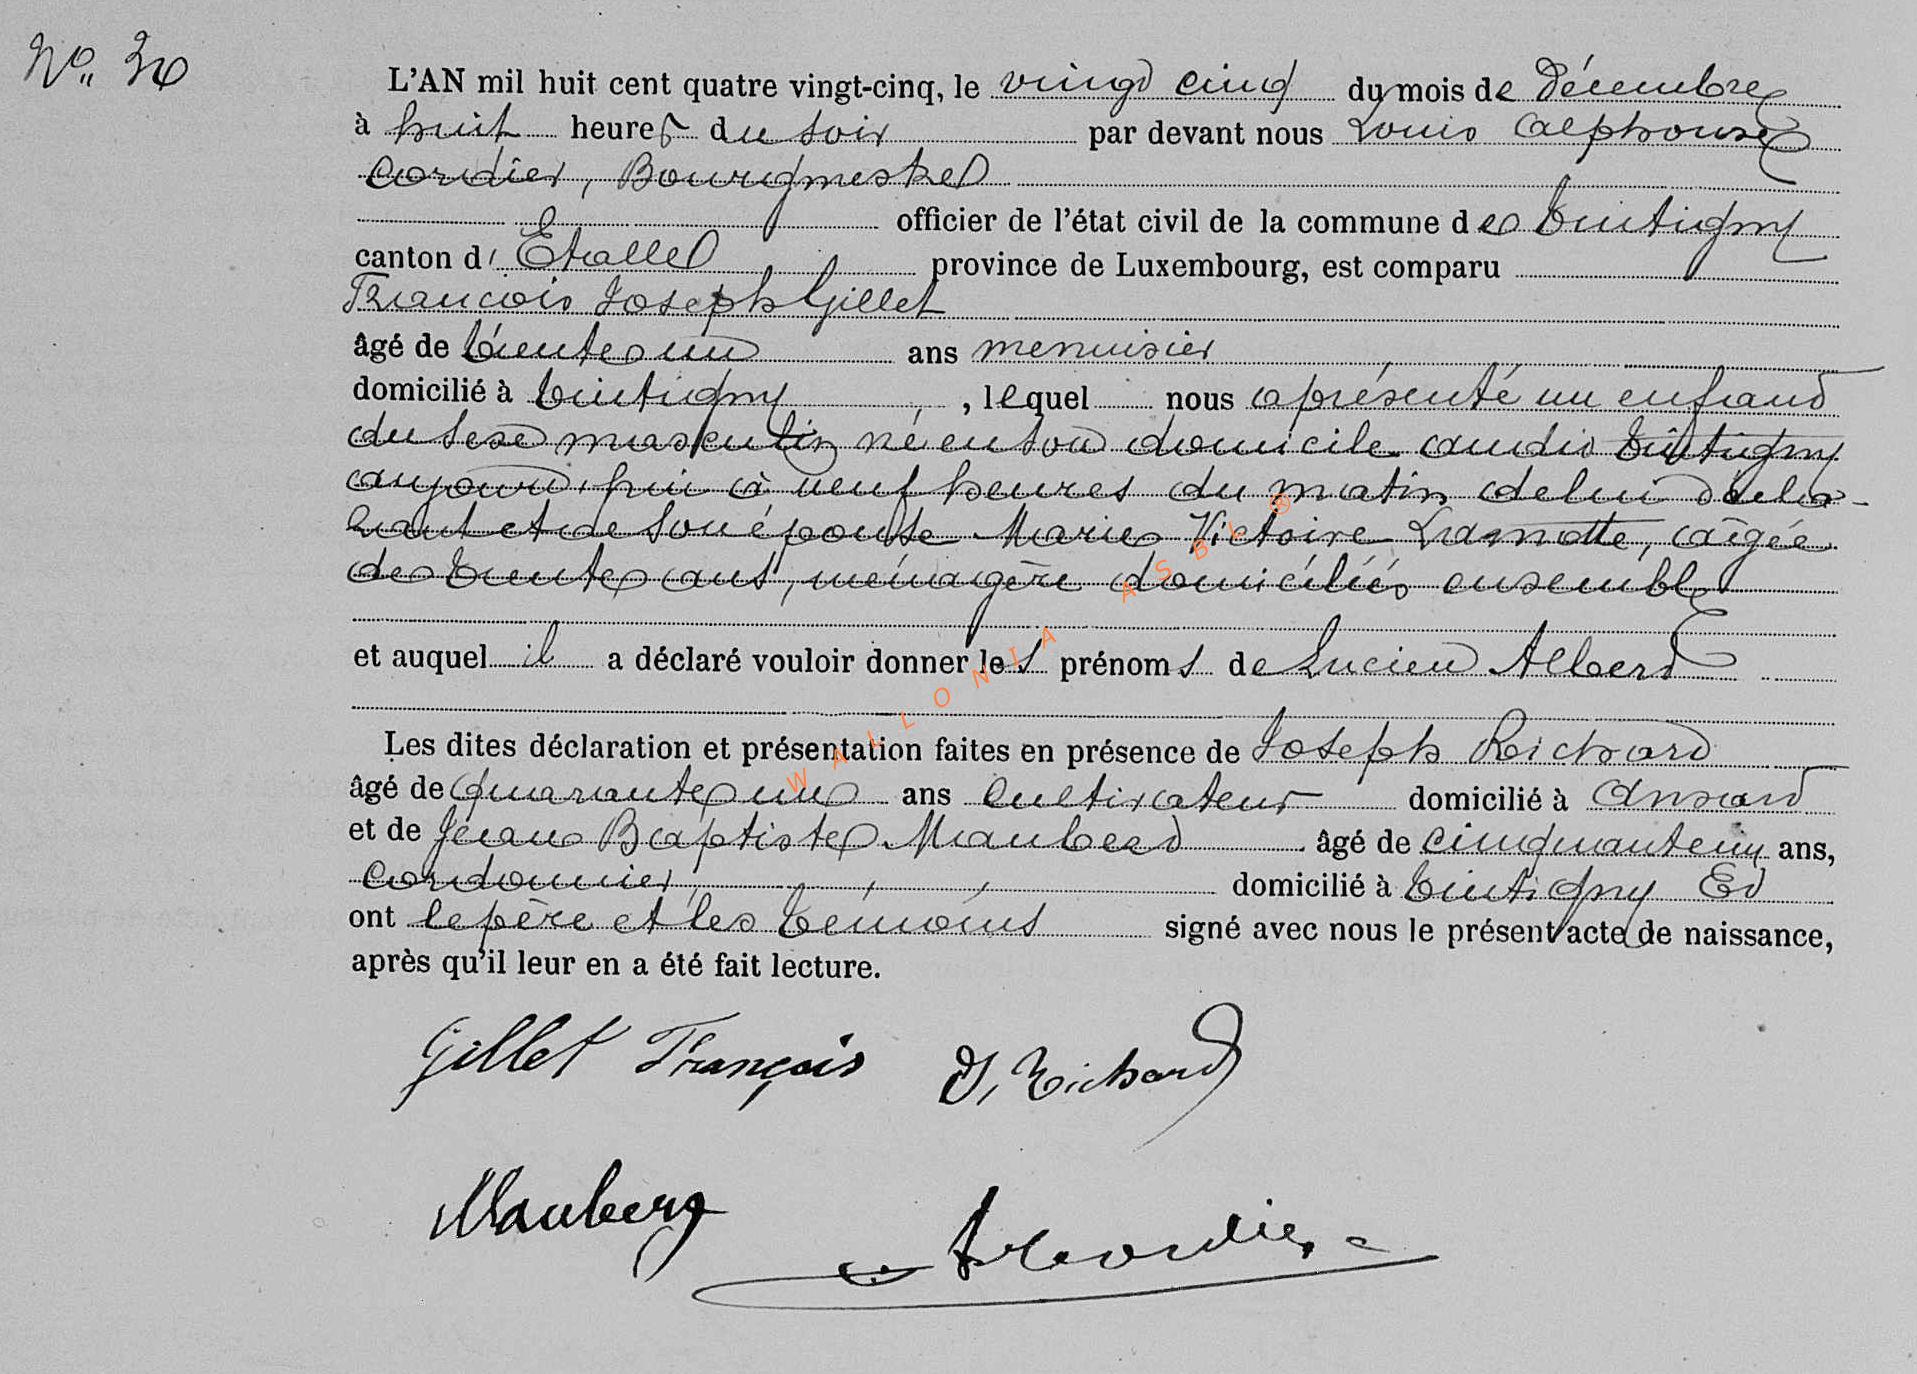 N°. 30
L'AN mil huit cent quatre vingt-cinq, le vingt cinq du mois de Décembre
à huit heures du soir par devant nous Louis Alphonse
Cordier, Bourgmestre
officier de l'état civil de la commune de Tintigny
canton d'Etalle province de Luxembourg, est comparu
Francois Joseph Gillet
âgé de trente un ans menuisier
domicilié à Tintigny, lequel nous a présenté un enfant
du sexe masculin né en son domicile audit Tintigny
aujourd'hui à neuf heures du matin de lui décla-
rant et de son épouse Marie Victoire Lamotte, âgée
de trente ans, ménagère domiciliés ensemble
et auquel il a déclaré vouloir donner les prénoms de Lucien Albert
Les dites déclaration et présentation faites en présence de Joseph Richard
âgé de quarante un ans cultivateur domicilié à Ansart
et de Jean Baptiste Maubert âgé de cinquante un ans,
cordonnier, domicilié à Tintigny Et
ont le père et les témoins signé avec nous le présent acte de naissance,
après qu'il leur en a été fait lecture.
Gillet François J. Richard
Cordier
WALLONIA ASBL ®